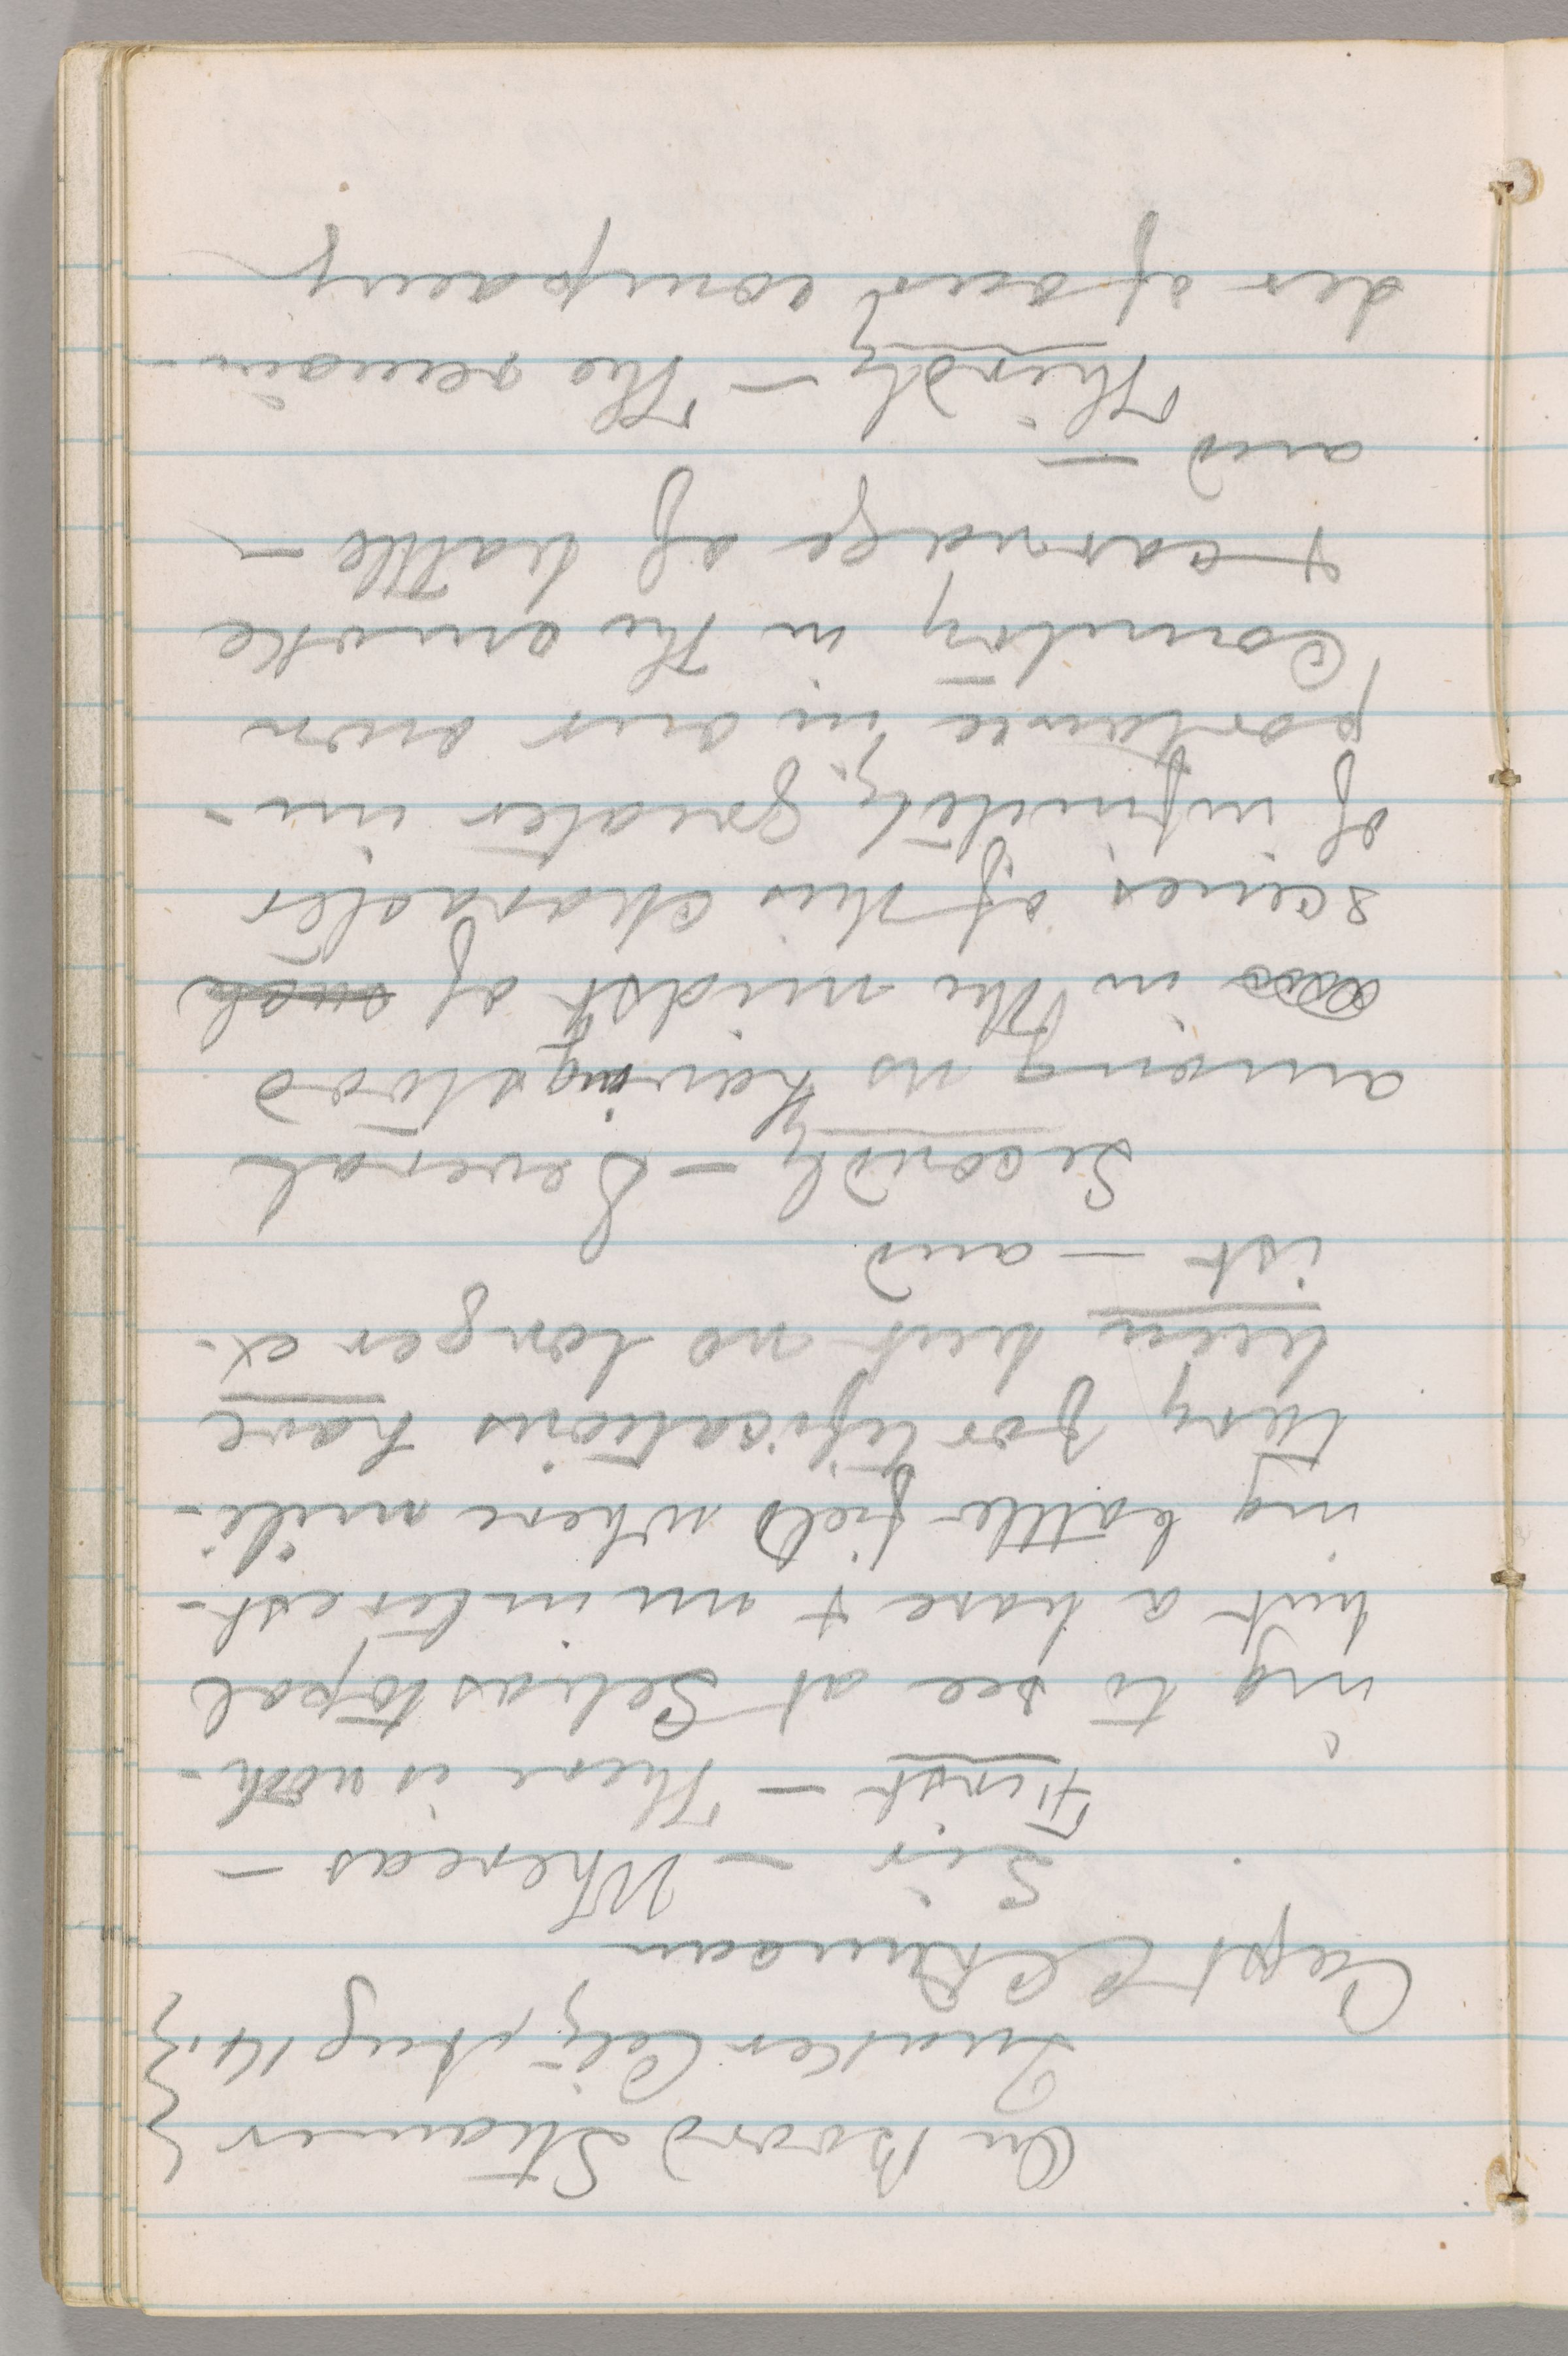 On Board Steamer }
Quaker City, Aug 14. }
Capt C C Duncan
Sir — Whereas —
First — There is noth-
ing to see at Sebastopol
but a bare & uninterest-
ing battle-field where mili-
tary fortifications have
been but no longer ex-
ist — and
Secondly — Several
among us having stood
in the midst of such
scenes of this character
of infinitely greater im-
portance in our own
Country in the smoke
& carnage of battle —
and —
Thirdly — The remain-
der of our company